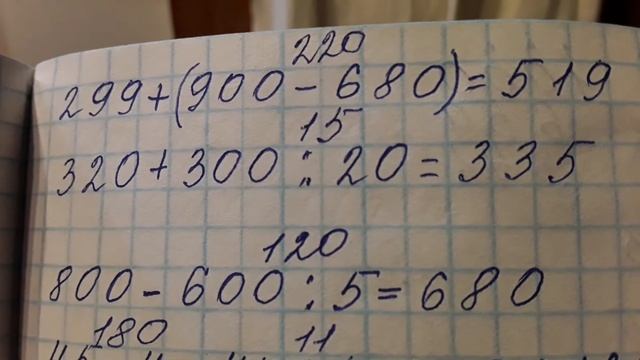 220
299+(900-680)=519
15
320+300:20=335
120
800-600:5=680
180 11